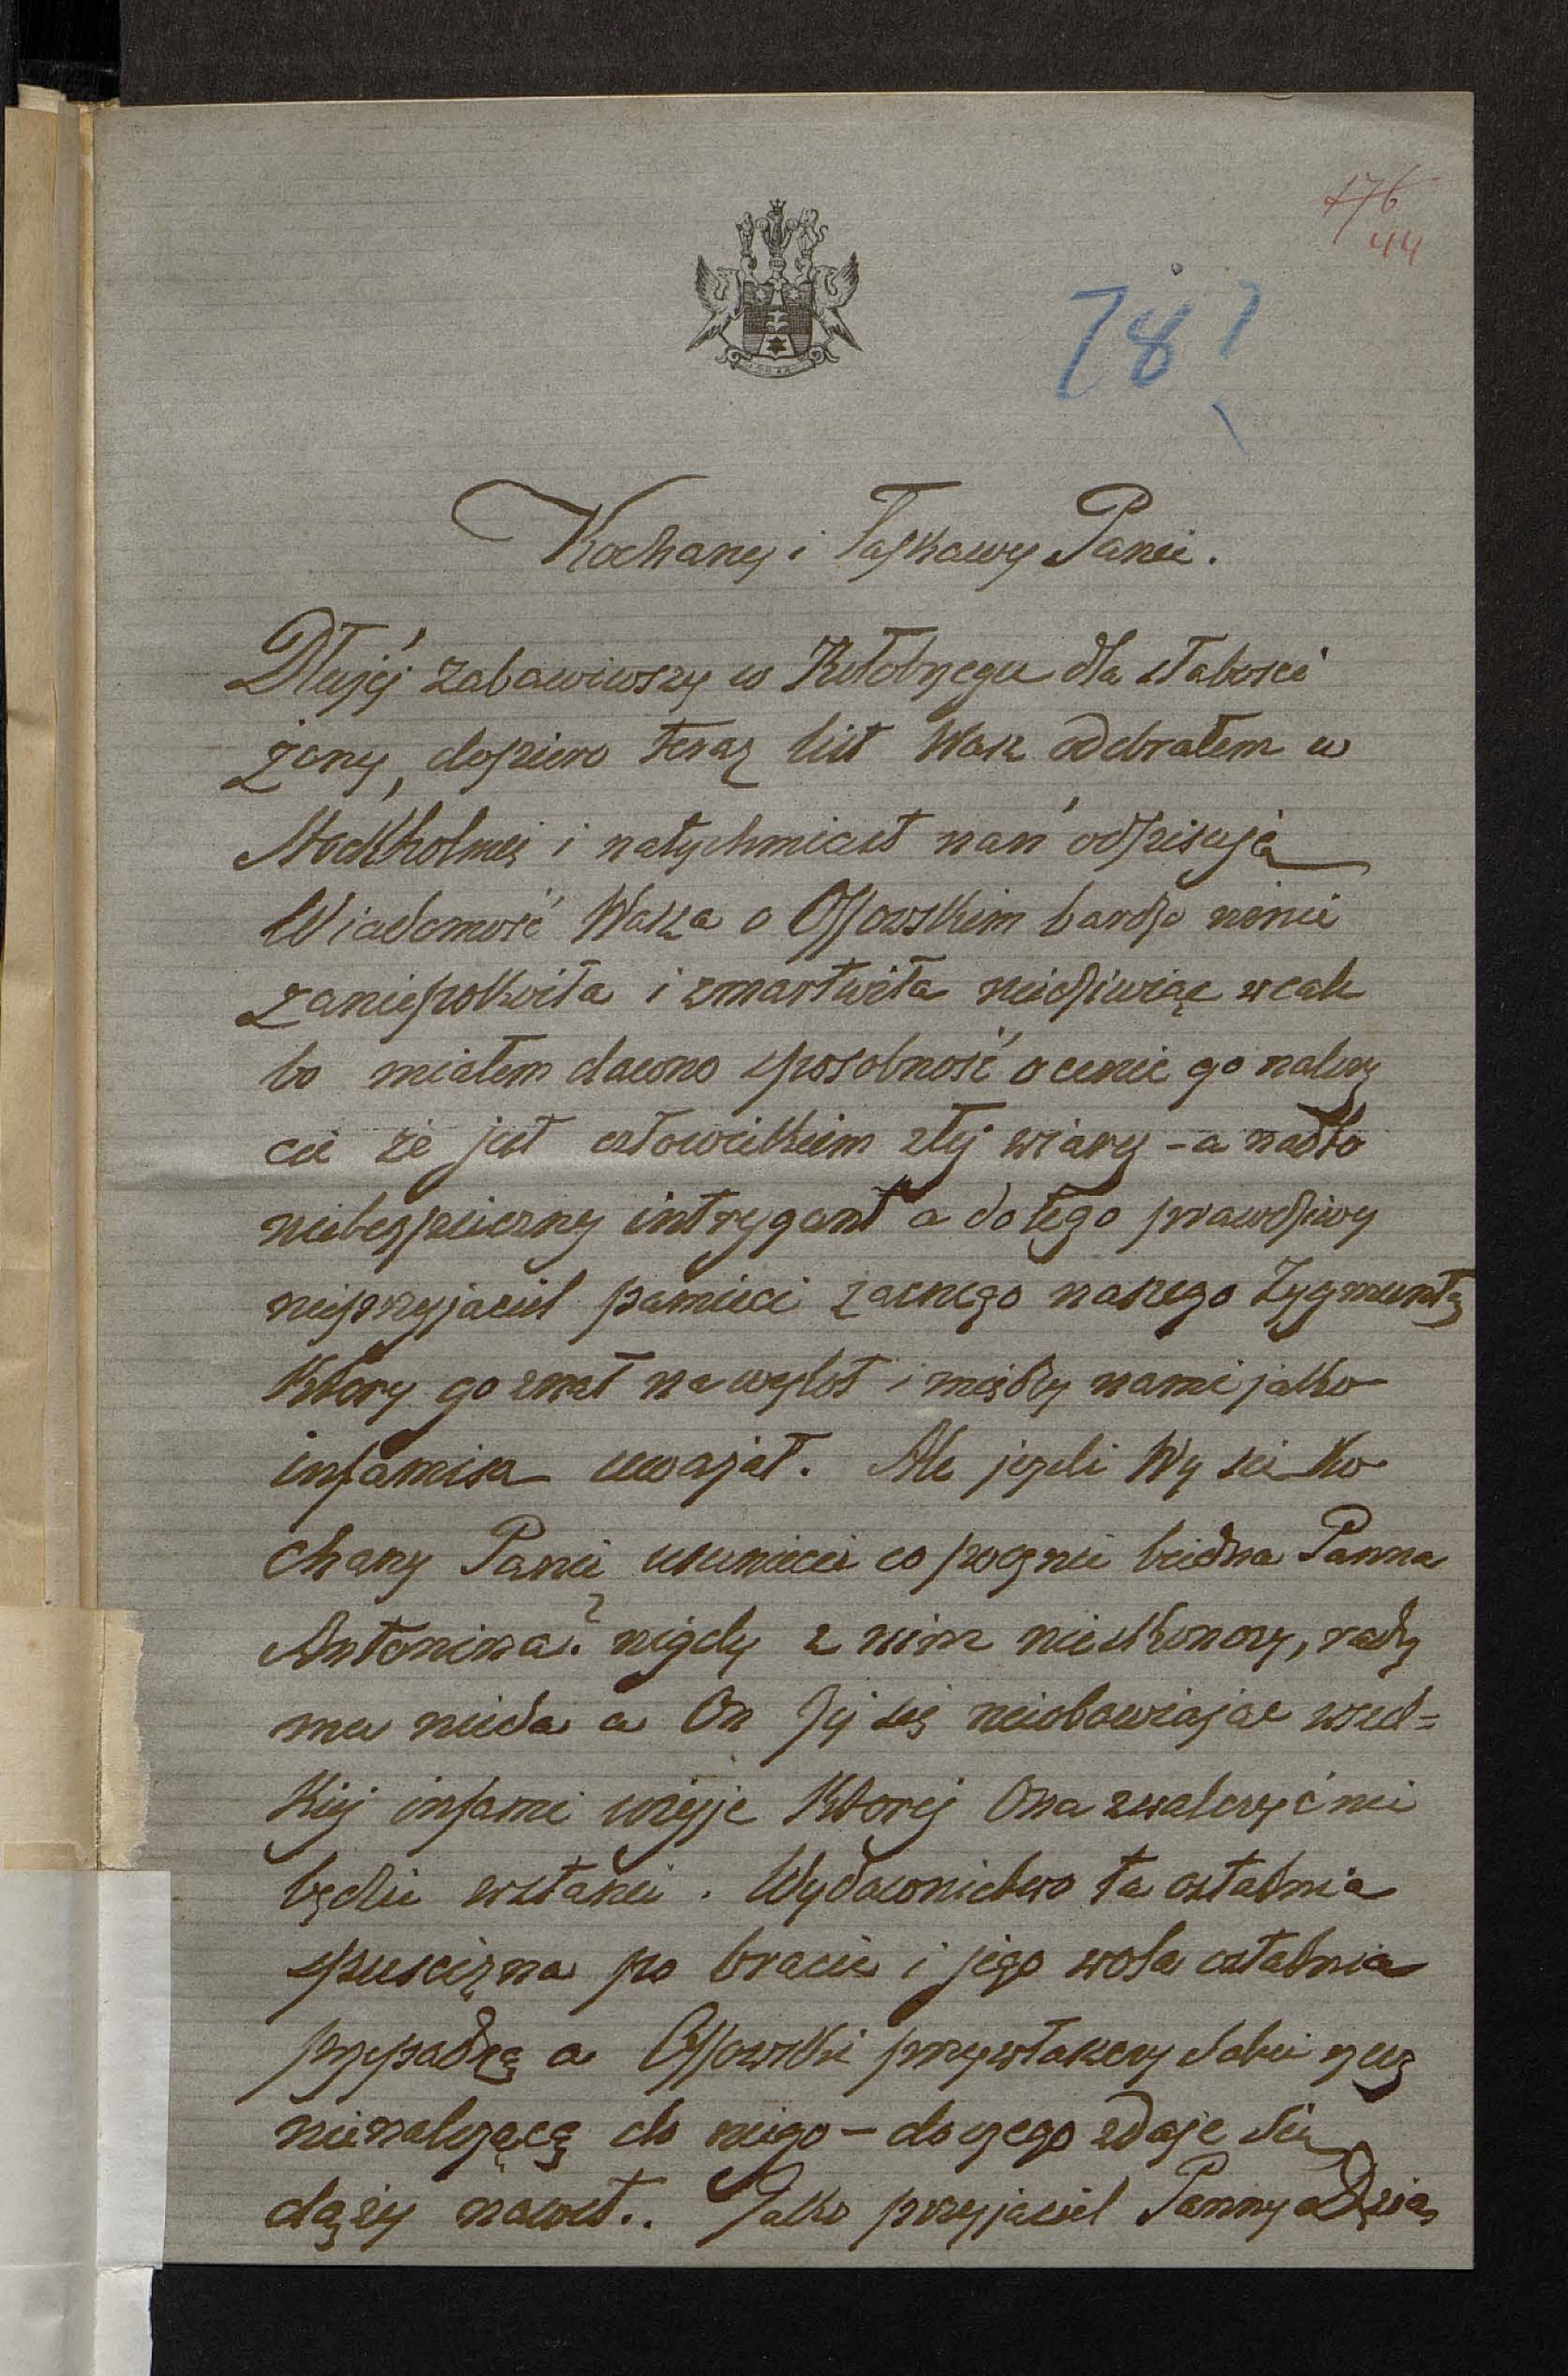 176
44
78?
Kochany i Łaskawy Panie.
Dłużéj zabawiwszy w Kołobrzegu dla słabosci
żony, dopiero teraz list Wasz odebrałem w
Stockholmie i natychmiast nań odpisuję
Wiadomość Wasza o Ossowskim bardzo mnie
zaniepokoiła i zmartwiła niedziwiąc wcale
bo miałem dawno sposobność ocenic go należy
cie że jest człowiekiem złej wiary - a nadto
niebezpieczny intrygant a do tego prawdziwy
nieprzyjaciel pamieci zacnego naszego Zygmunta
Ktory go znał na wylot i między nami jako
infamisa uważał. Ale jezeli Wy sie Ko
chany Panie usuniecie co pocznie biedna Panna
Antonina? nigdy z nim nieskonczy, rady
mu nieda a On Jej się nieobawiajac wszel=
kiej infami użyje Ktorej Ona zwalczyć nie
będzie wstanie. Wydawnictwo ta ostatnia
spuscizna po bracie i jego wola ostatnia
przepadną a Ossowski przywłaszczy sobie rzecz
nienależącą do niego - do czego zdaje się
dąży nawet.. Jako przyjaciel Panny